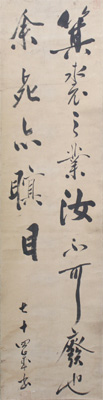 箕裘之業汝不可廢也
余死亦瞑目
七十四歲書